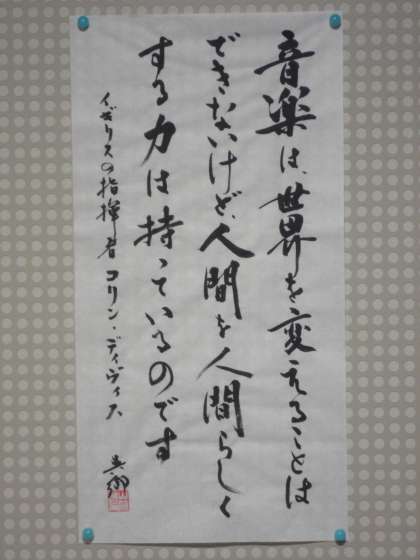 音楽は、世界を変えることは
できないけど、人間を人間らしく
する力は持っているのです
イギリスの指揮者コリン・ディヴィス